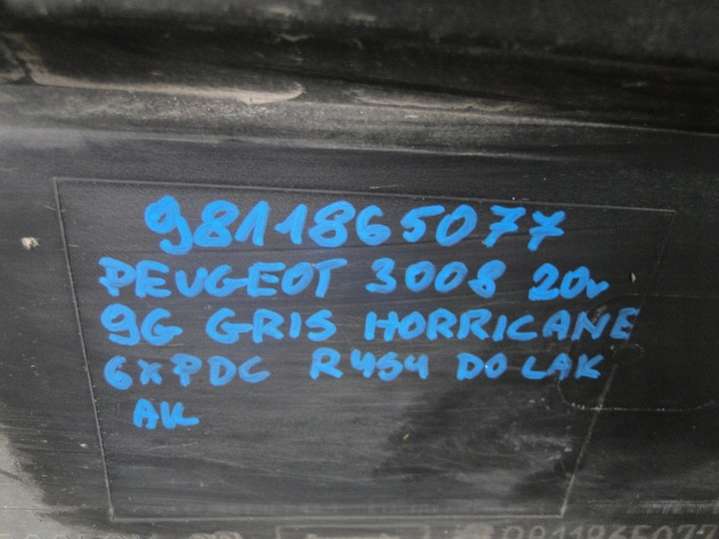 9811865077
PEUGEOT 3008 20r
9G GRIS HORRICANE
6xPDC RYSY DO LAK
AK
9811865077